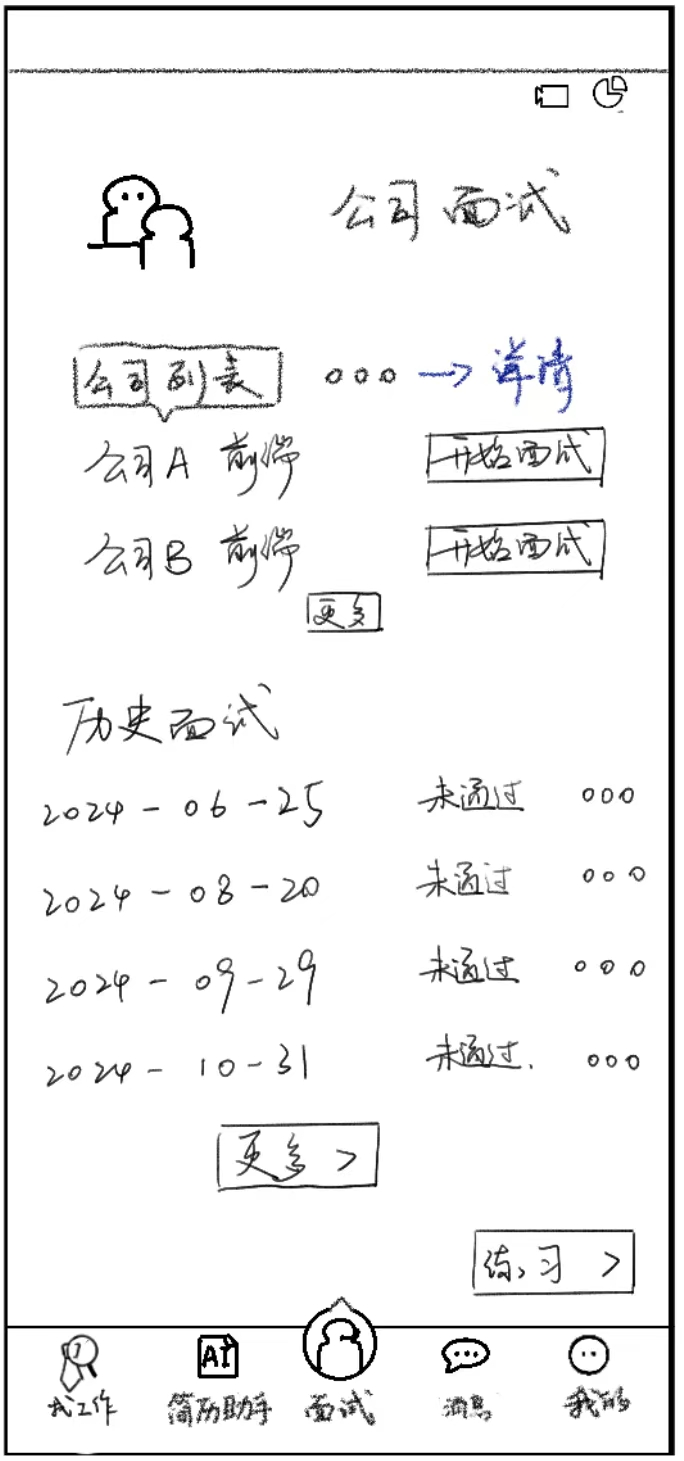 公司面试
公司列表 ooo → 详情
公司A 前端 开始面试
公司B 前端 开始面试
更多
历史面试
2024-06-25 未通过 ooo
2024-08-20 未通过 ooo
2024-09-29 未通过 ooo
2024-10-31 未通过. ooo
更多 >
练习 >
AI
找工作 简历助手 面试 消息 我的